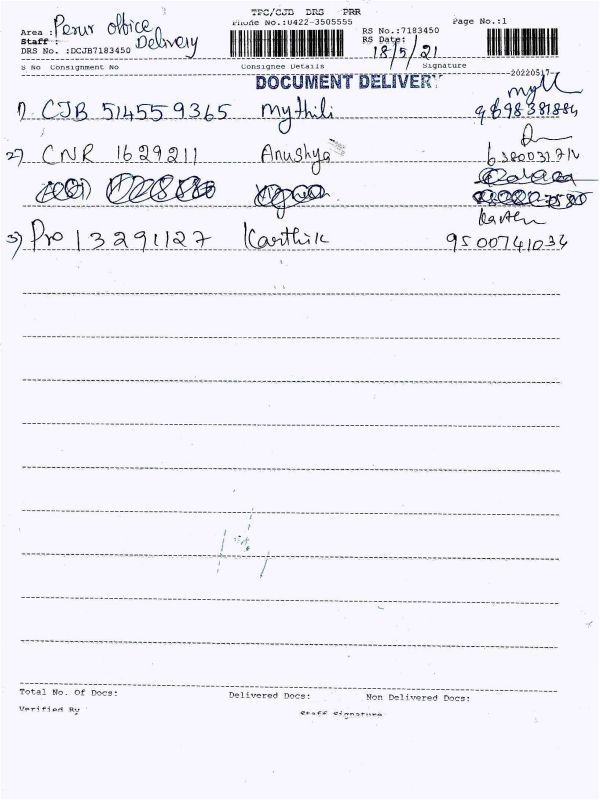 TPC/CJB DRS PRR
Phone No.:0422-3505555 Page No.:1
Area : Perur office Delivery RS No.:7183450
Staff : RS Date: 18/5/21
DRS No. :DCJB7183450
S No Consignment No Consignee Details Signature
20220517
DOCUMENT DELIVERY
1) CJB 514559365 Mythili
2) CNR 1629211 Anushya
3) Pro 13291127 Karthik Karthi
9500741034
Total No. Of Docs: Delivered Docs: Non Delivered Docs:
Verified By Staff Signature